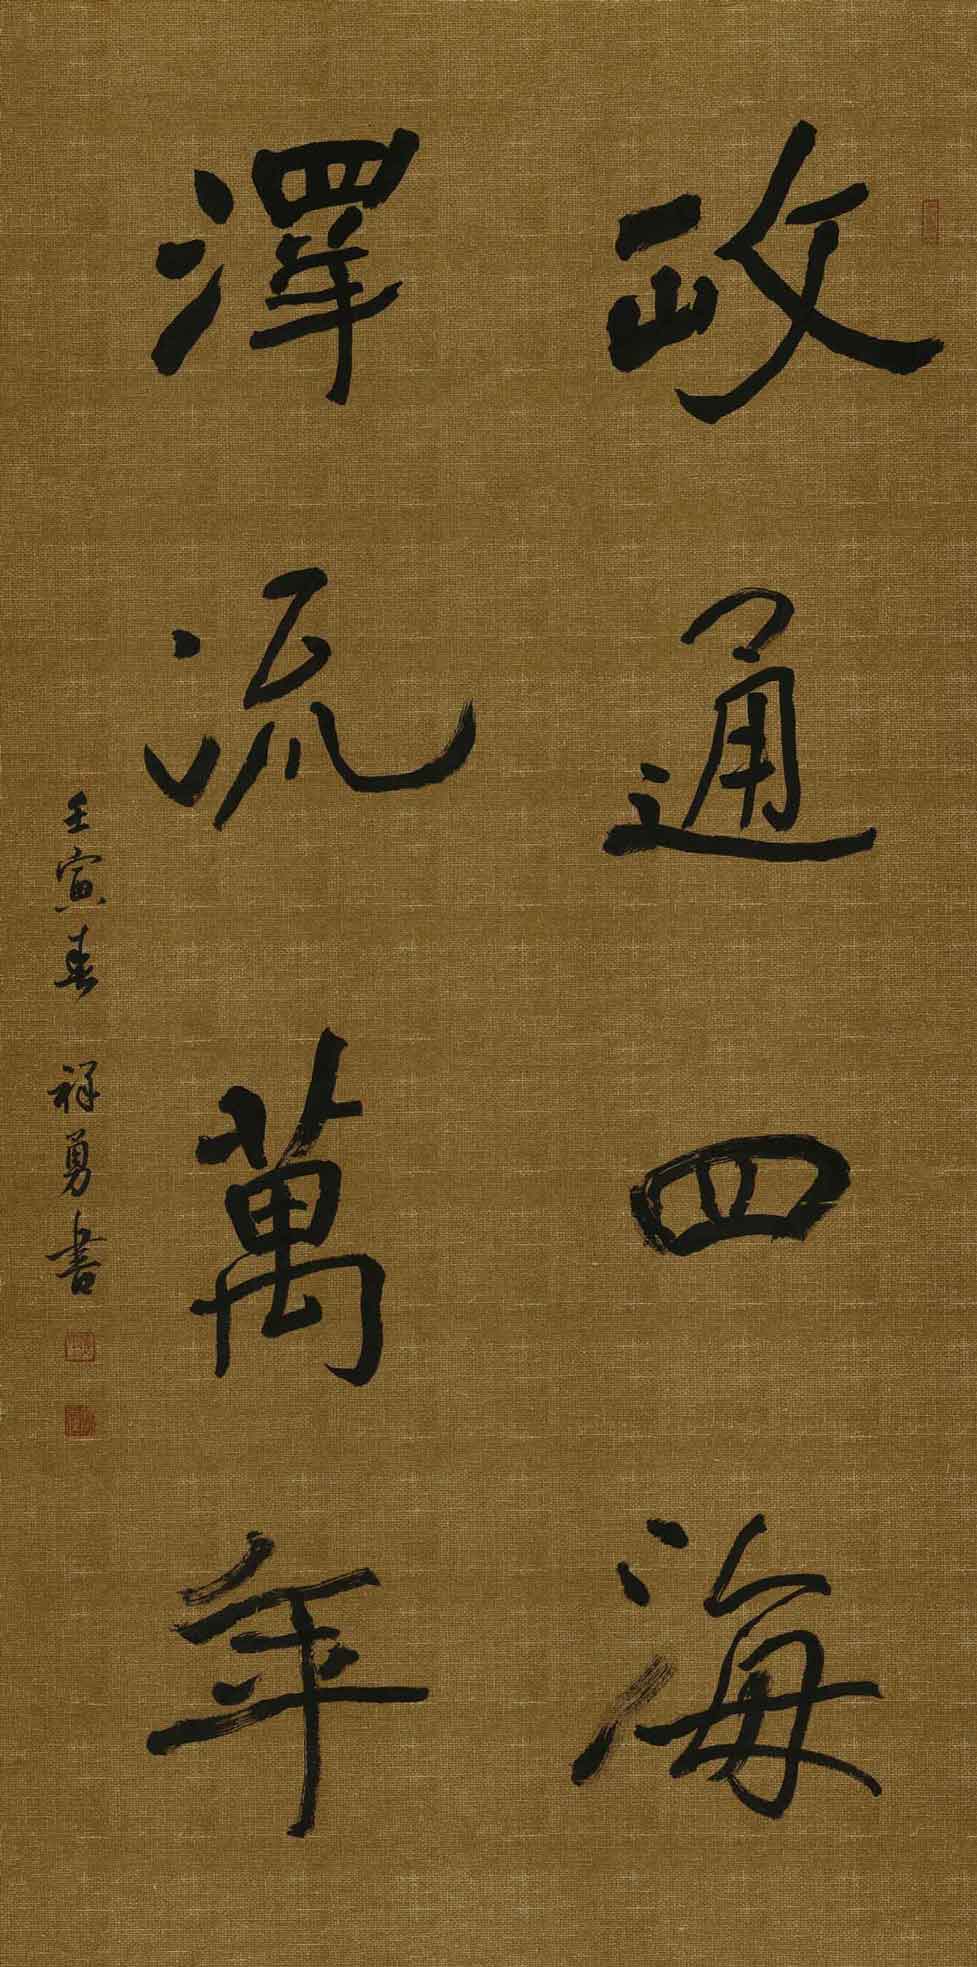 政通四海
澤流萬年
壬寅春 祥勇書